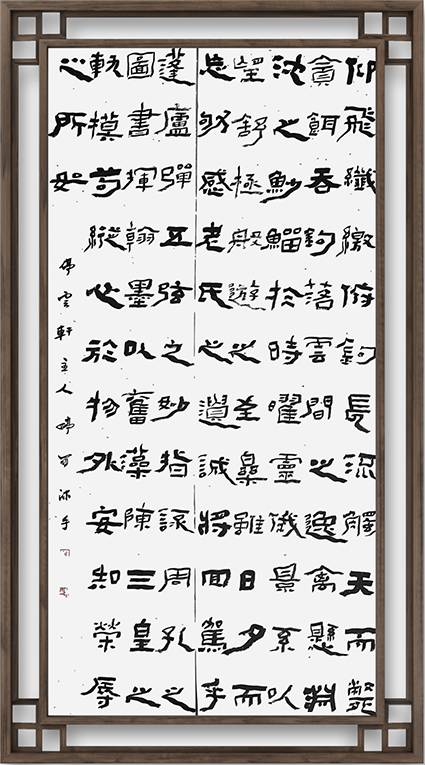 仰飛纖繳俯釣長流觸矢而斃
貪餌吞鉤落雲間之逸禽懸淵
沈之魦鰡於時曜靈俄景系以
望舒極般遊之至樂雖日夕而
忘劬感老氏之遺誡將回駕乎
蓬廬彈五弦之妙指詠周孔之
圖書揮翰墨以奮藻陳三皇之
軌摸苟縱心於物外安知榮辱
之所如
雲軒主人